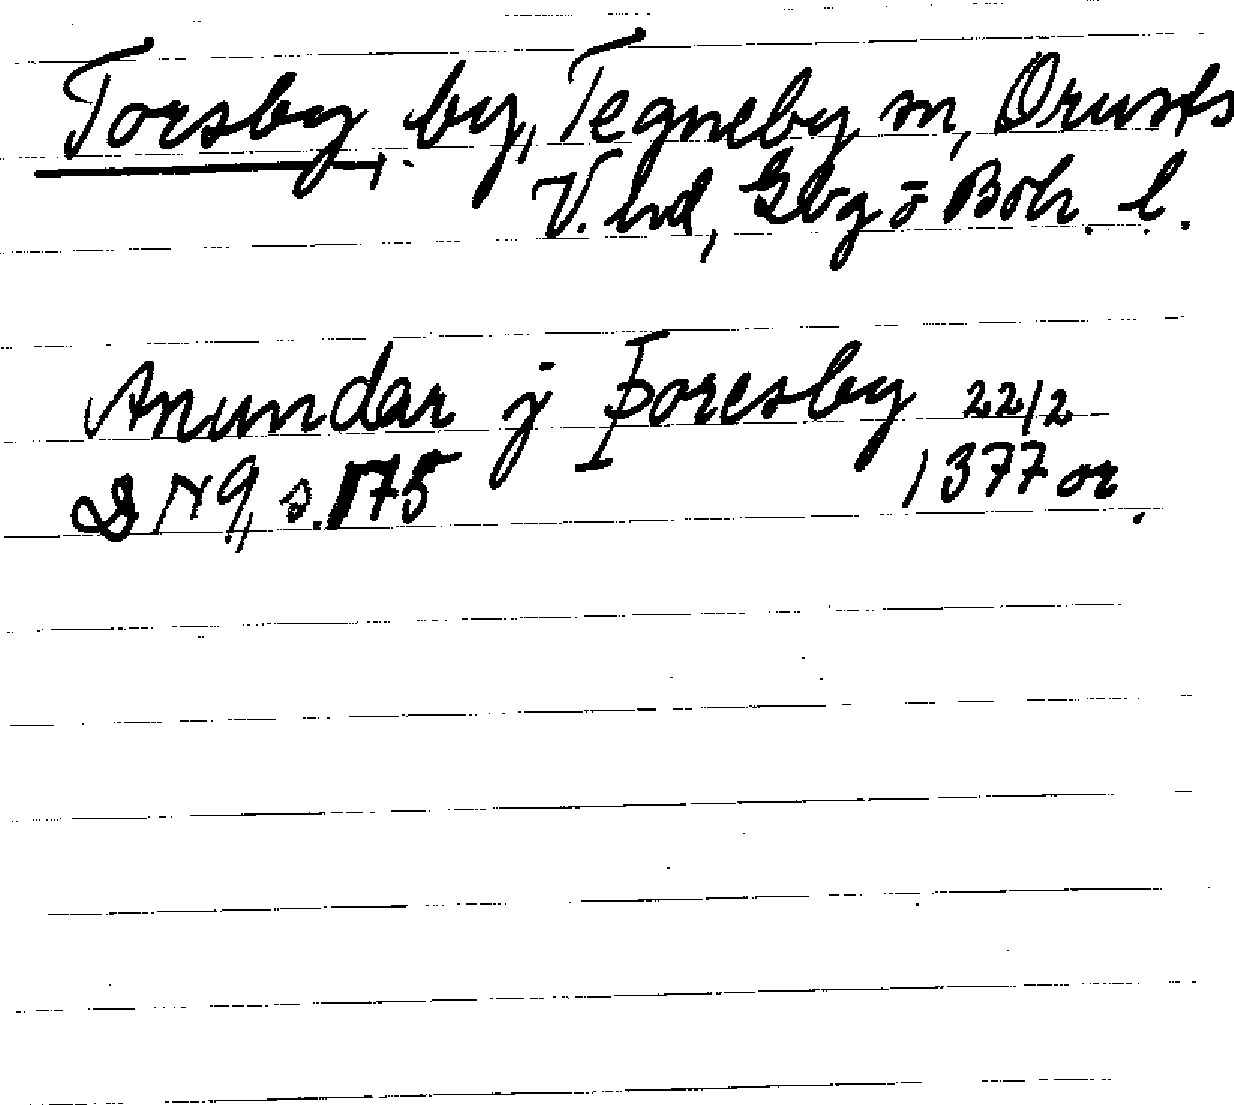 Torsby, by, Tegneby sn, Orusts
V. hd, Gbg o Boh. l.
Anundar j Þoresby 22/2
DN 9, s. 175 1377 or.